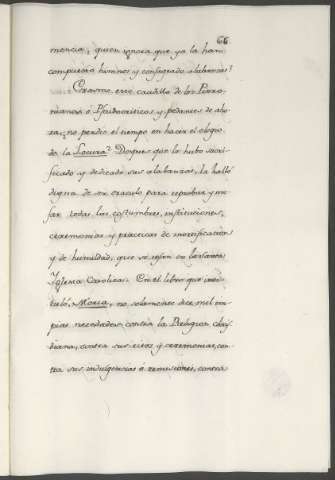 66
mencia, quien ignora que ya la han
compuesto himnos y consagrado alabanzas?
Erasmo, ese caudillo de los Pirro-
nianos ó Pseudocriticos y pedantes de aho-
ra, no perdio el tiempo en hacer el elogio
de la Locura? Despues que la hubo sacri-
ficado y dedicado sus alabanzas, la halló
digna de ser oraculo para reprobar y mo-
far todas las costumbres, instituciones,
ceremonias y practicas de mortificacion
y de humildad, que se usan en la Santa
Iglesia Catolica. En el libro que inti-
tuló, Moria, no solamente dice mil im-
pias necedades contra la Religion chris-
tiana, contra sus ritos y ceremonias, con-
tra sus indulgencias ó remisiones, contra